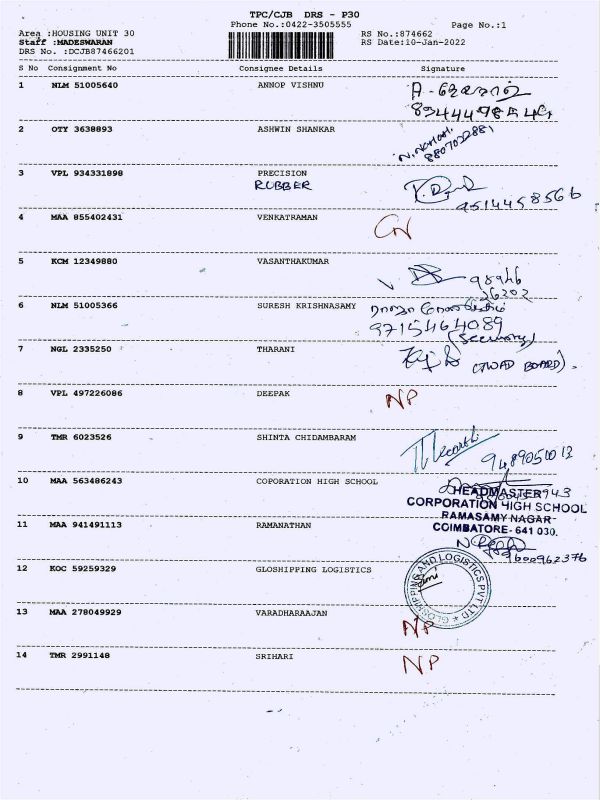 TPC/CJB DRS - P30
Phone No.:0422-3505555 Page No.:1
Area :HOUSING UNIT 30 RS No.:874662
Staff :MADESWARAN RS Date:10-Jan-2022
DRS No. :DCJB87466201
S No Consignment No Consignee Details Signature
1 NLM 51005640 ANNOP VISHNU
2 OTY 3638893 ASHWIN SHANKAR
8807022881
3 VPL 934331898 PRECISION
RUBBER
9514458566
4 MAA 855402431 VENKATRAMAN
5 KCM 12349880 VASANTHAKUMAR
98946
36202
6 NLM 51005366 SURESH KRISHNASAMY
9715464089
(Security)
7 NGL 2335250 THARANI
(TWAD BOARD).
8 VPL 497226086 DEEPAK NP
9 TMR 6023526 SHINTA CHIDAMBARAM
10 MAA 563486243 COPORATION HIGH SCHOOL
HEADMASTER
CORPORATION HIGH SCHOOL
RAMASAMY NAGAR
COIMBATORE-641 030.
11 MAA 941491113 RAMANATHAN
9600962376
12 KOC 59259329 GLOSHIPPING LOGISTICS
GLOSHIPPING AND LOGISTICS PVT LTD
13 MAA 278049929 VARADHARAAJAN NP
14 TMR 2991148 SRIHARI NP